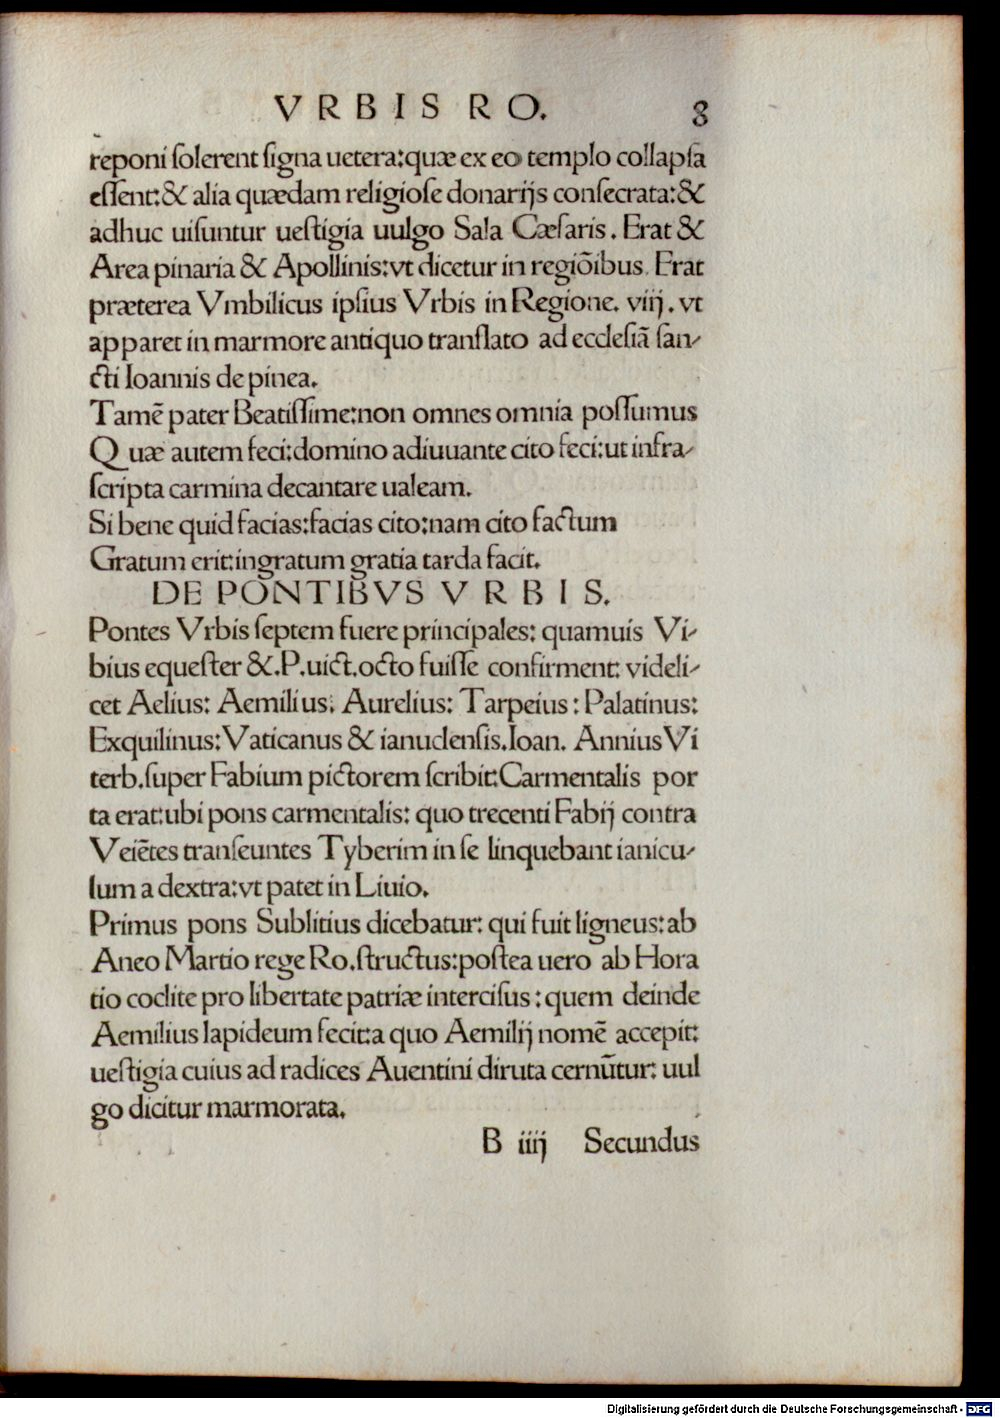 VRBIS RO. 8
reponi ſolerent ſigna uetera:quæ ex eo templo collapſa
eſſent:& alia quædam religioſe donarijs conſecrata:&
adhuc uiſuntur ueſtigia uulgo Sala Cæſaris. Erat &
Area pinaria & Apollinis:vt dicetur in regiõibus. Erat
præterea Vmbilicus ipſius Vrbis in Regione. viij. vt
apparet in marmore antiquo tranſlato ad eccleſiã ſan-
cti Ioannis de pinea.
Tamē pater Beatiſſime:non omnes omnia poſſumus
Quæ autem feci:domino adiuuante cito feci:ut infra-
ſcripta carmina decantare ualeam.
Si bene quid facias:facias cito:nam cito factum
Gratum erit:ingratum gratia tarda facit.
DE PONTIBVS VRBIS.
Pontes Vrbis ſeptem fuere principales: quamuis Vi-
bius equeſter &.P.uict.octo fuiſſe confirment: videli-
cet Aelius: Aemilius: Aurelius: Tarpeius: Palatinus:
Exquilinus:Vaticanus & ianuclenſis.Ioan. Annius Vi
terb.ſuper Fabium pictorem ſcribit:Carmentalis por
ta erat:ubi pons carmentalis: quo trecenti Fabij contra
Veiētes tranſeuntes Tyberim in ſe linquebant ianicu-
lum a dextra:vt patet in Liuio.
Primus pons Sublitius dicebatur: qui fuit ligneus: ab
Anco Martio rege Ro.ſtructus:poſtea uero ab Hora
tio coclite pro libertate patriæ interciſus: quem deinde
Aemilius lapideum fecit:a quo Aemilij nomē accepit:
ueſtigia cuius ad radices Auentini diruta cernūtur: uul
go dicitur marmorata.
B iiij Secundus
Digitalisierung gefördert durch die Deutsche Forschungsgemeinschaft - DFG